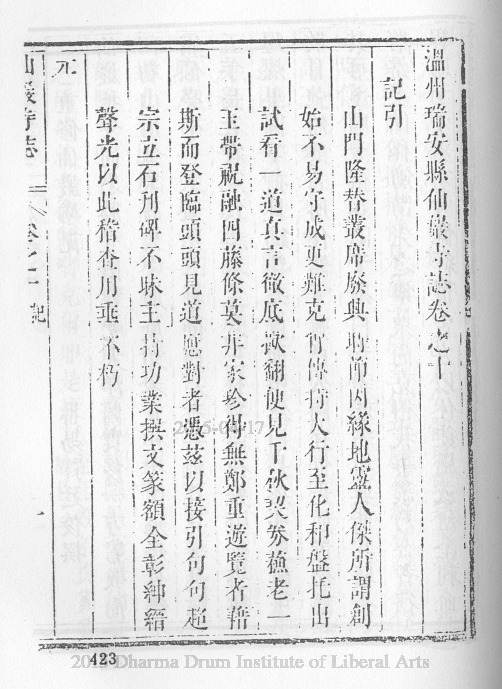 溫州瑞安縣仙巖寺誌卷之十
記引
山門隆替叢席廢興時節因緣地靈人傑所謂創
始不易守成更難克肖傳持大行至化和盤托出
試看一道真言徹底掀翻便見千秋契券蘓老一
玉帶祝融四藤條莫非家珍得無鄭重遊覽者藉
斯而登臨頭頭見道應對者憑茲以接引句句超
宗立石刋碑不昧主持功業撰文篆額全彰紳縉
聲光以此稽查用垂不朽
元
仙巖寺誌 卷之十 記 一
423
2015-04-17
Dharma Drum Institute of Liberal Arts